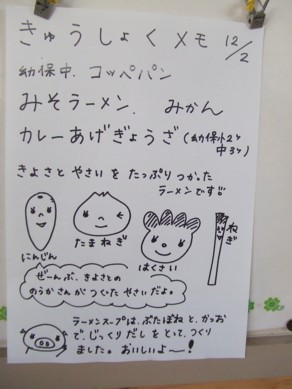 きゅうしょくメモ 12/2
幼保中. コッペパン
みそラーメン. みかん
カレーあげぎょうざ(幼保小2ケ
中3ケ)
きよさと やさい を たっぷり つかった
ラーメンです!!
にんじん
たまねぎ
はくさい
ねぎ
ぜーんぶ、きよさとの
のうかさんが つくった やさいだよ。
ラーメンスープは、ぶたぼねと、かつお
で、じっくり だし を とって、つくり
ました。おいしいよ〜!